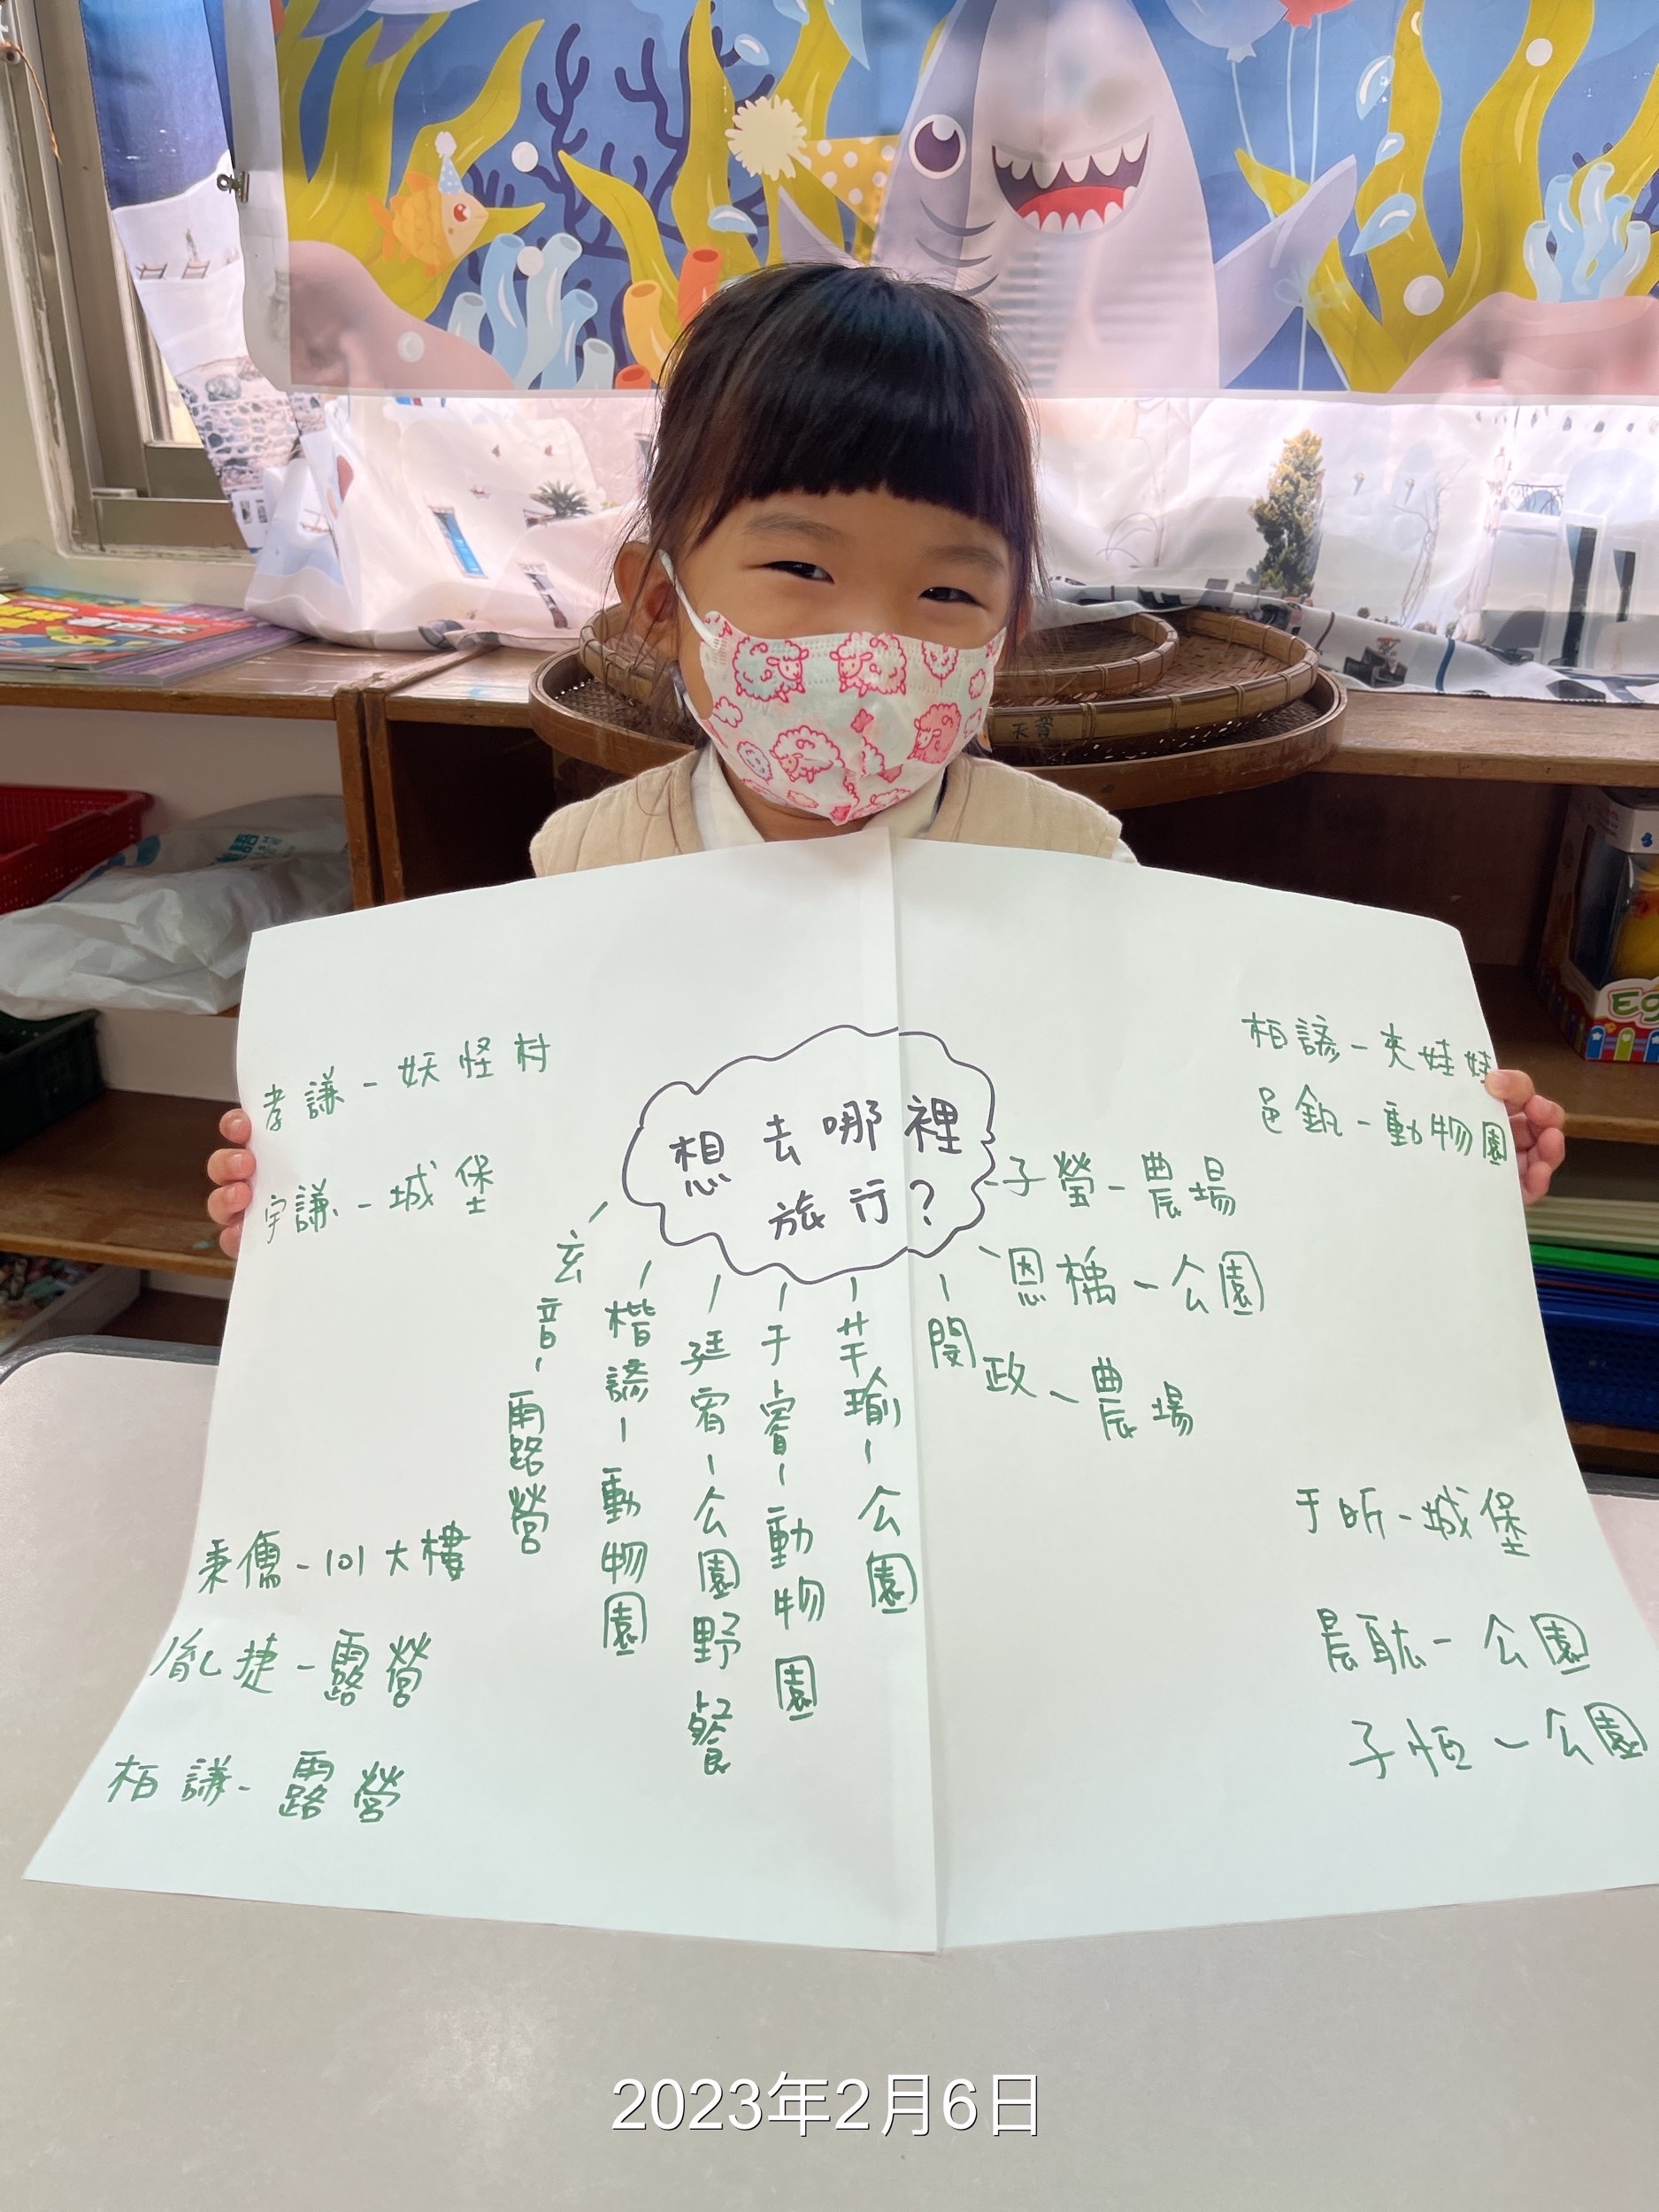 想去哪裡
旅行？
孝謙-妖怪村
宇謙-城堡
玄音-露營
楷諺-動物園
廷宥-公園野餐
于睿-動物園
芊瑜-公園
閔政-農場
恩楀-公園
子瑩-農場
柏諺-夾娃娃
邑釩-動物園
秉儒-101大樓
胤捷-露營
柏謙-露營
于昕-城堡
晨耘-公園
子恒-公園
天
2023年2月6日